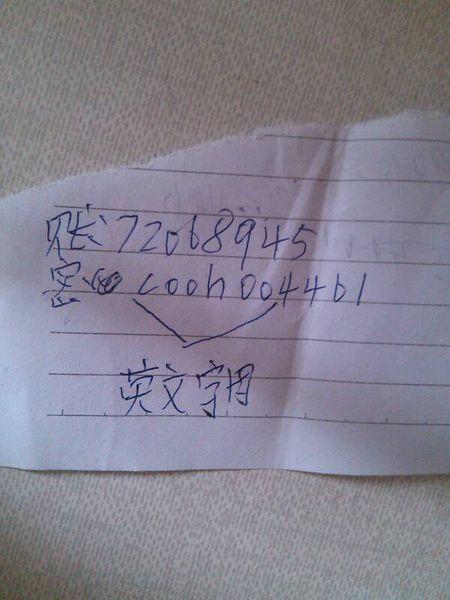 账:72068945
密:cooh004461
英文字母